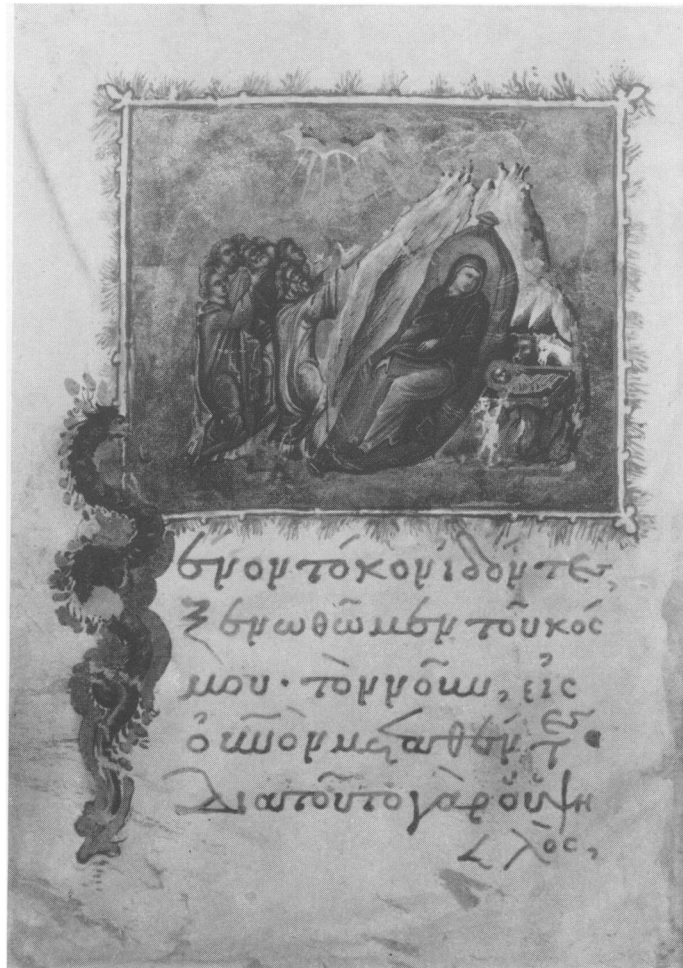 Ξένον τόκον ἰδόντες,
ξενωθῶμεν τοῦ κόσ
μου· τὸν νοῦν, εἰς
οὐνὸν μεταθέντες·
Διατοῦτο γὰρ ὁ ὑψη
λὸς,